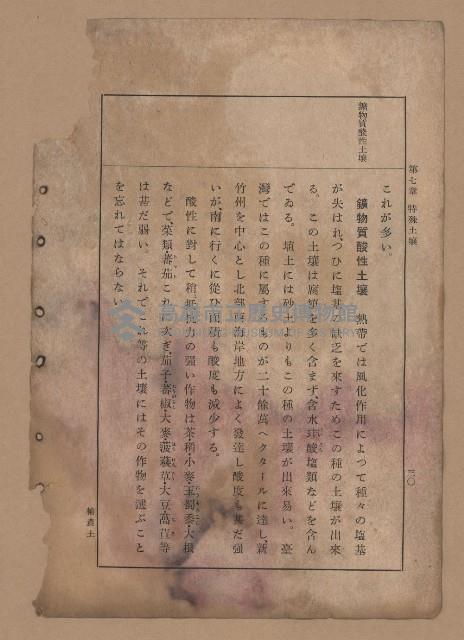 第七章 特殊土壤
三〇
鑛物質酸性土壤
これが多い。
鑛物質酸性土壤 熱帶では風化作用によつて種々の塩基
が失はれ、つひに塩基の缺乏を來すためこの種の土壤が出來
る。この土壤は腐植を多く含まず、含水珪酸塩類などを含ん
でゐる。埴土には砂土よりもこの種の土壤が出來易い。臺
灣ではこの種に屬するものが二十餘萬ヘクタールに達し、新
竹州を中心とし北部海岸地方によく發達し酸度も甚だ强
いが、南に行くに從ひ面積も酸度も減少する。
酸性に對して稍抵抗力の强い作物は茶・稻・小麥・玉蜀黍・大根
などで、菜類・蕃茄これに次ぎ、茄子・蕃椒・大麥・菠薐草・大豆・萵苣等
は甚だ弱い。それでこれ等の土壤にはその作物を選ぶこと
を忘れてはならない。
高雄市立歷史博物館
KAOHSIUNG MUSEUM OF HISTORY